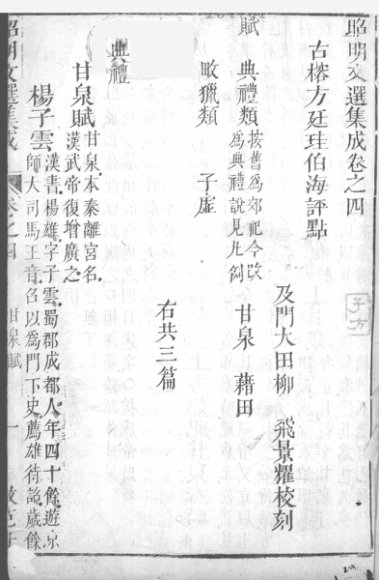 昭明文選集成卷之四
古榕方廷珪伯海評點
及門大田柳飛景耀校刻
賦 典禮類 按舊爲郊祀今改
爲典禮說見凡例 甘泉 藉田
畋獵類 子虛
右共三篇
典禮
甘泉賦 甘泉本秦離宮名
漢武帝復增廣之
楊子雲 漢書楊雄字子雲蜀郡成都人年四十餘遊京
師大司馬王音召以爲門下史薦雄待詔歲餘
昭明文選集成 卷之四 甘泉賦 一